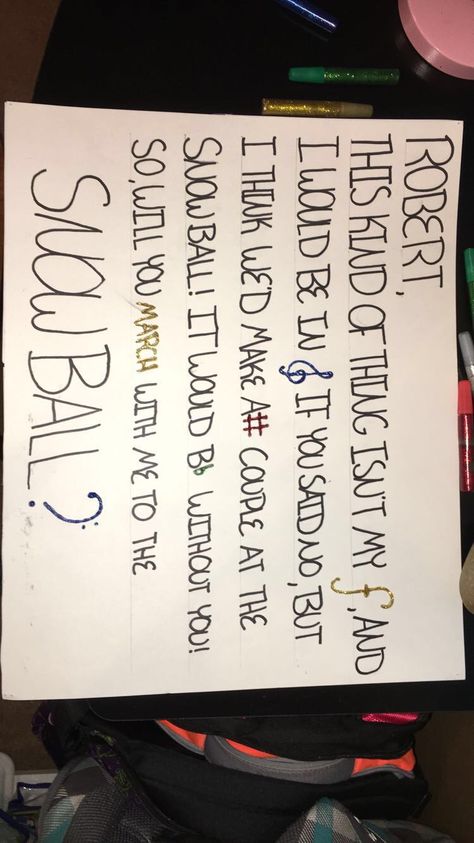 ROBERT,
THIS KIND OF THING ISN'T MY f, AND
I WOULD BE IN 𝄞 IF YOU SAID NO, BUT
I THINK WE'D MAKE A# COUPLE AT THE
SNOW BALL! IT WOULD B♭ WITHOUT YOU!
SO, WILL YOU MARCH WITH ME TO THE
SNOW BALL?